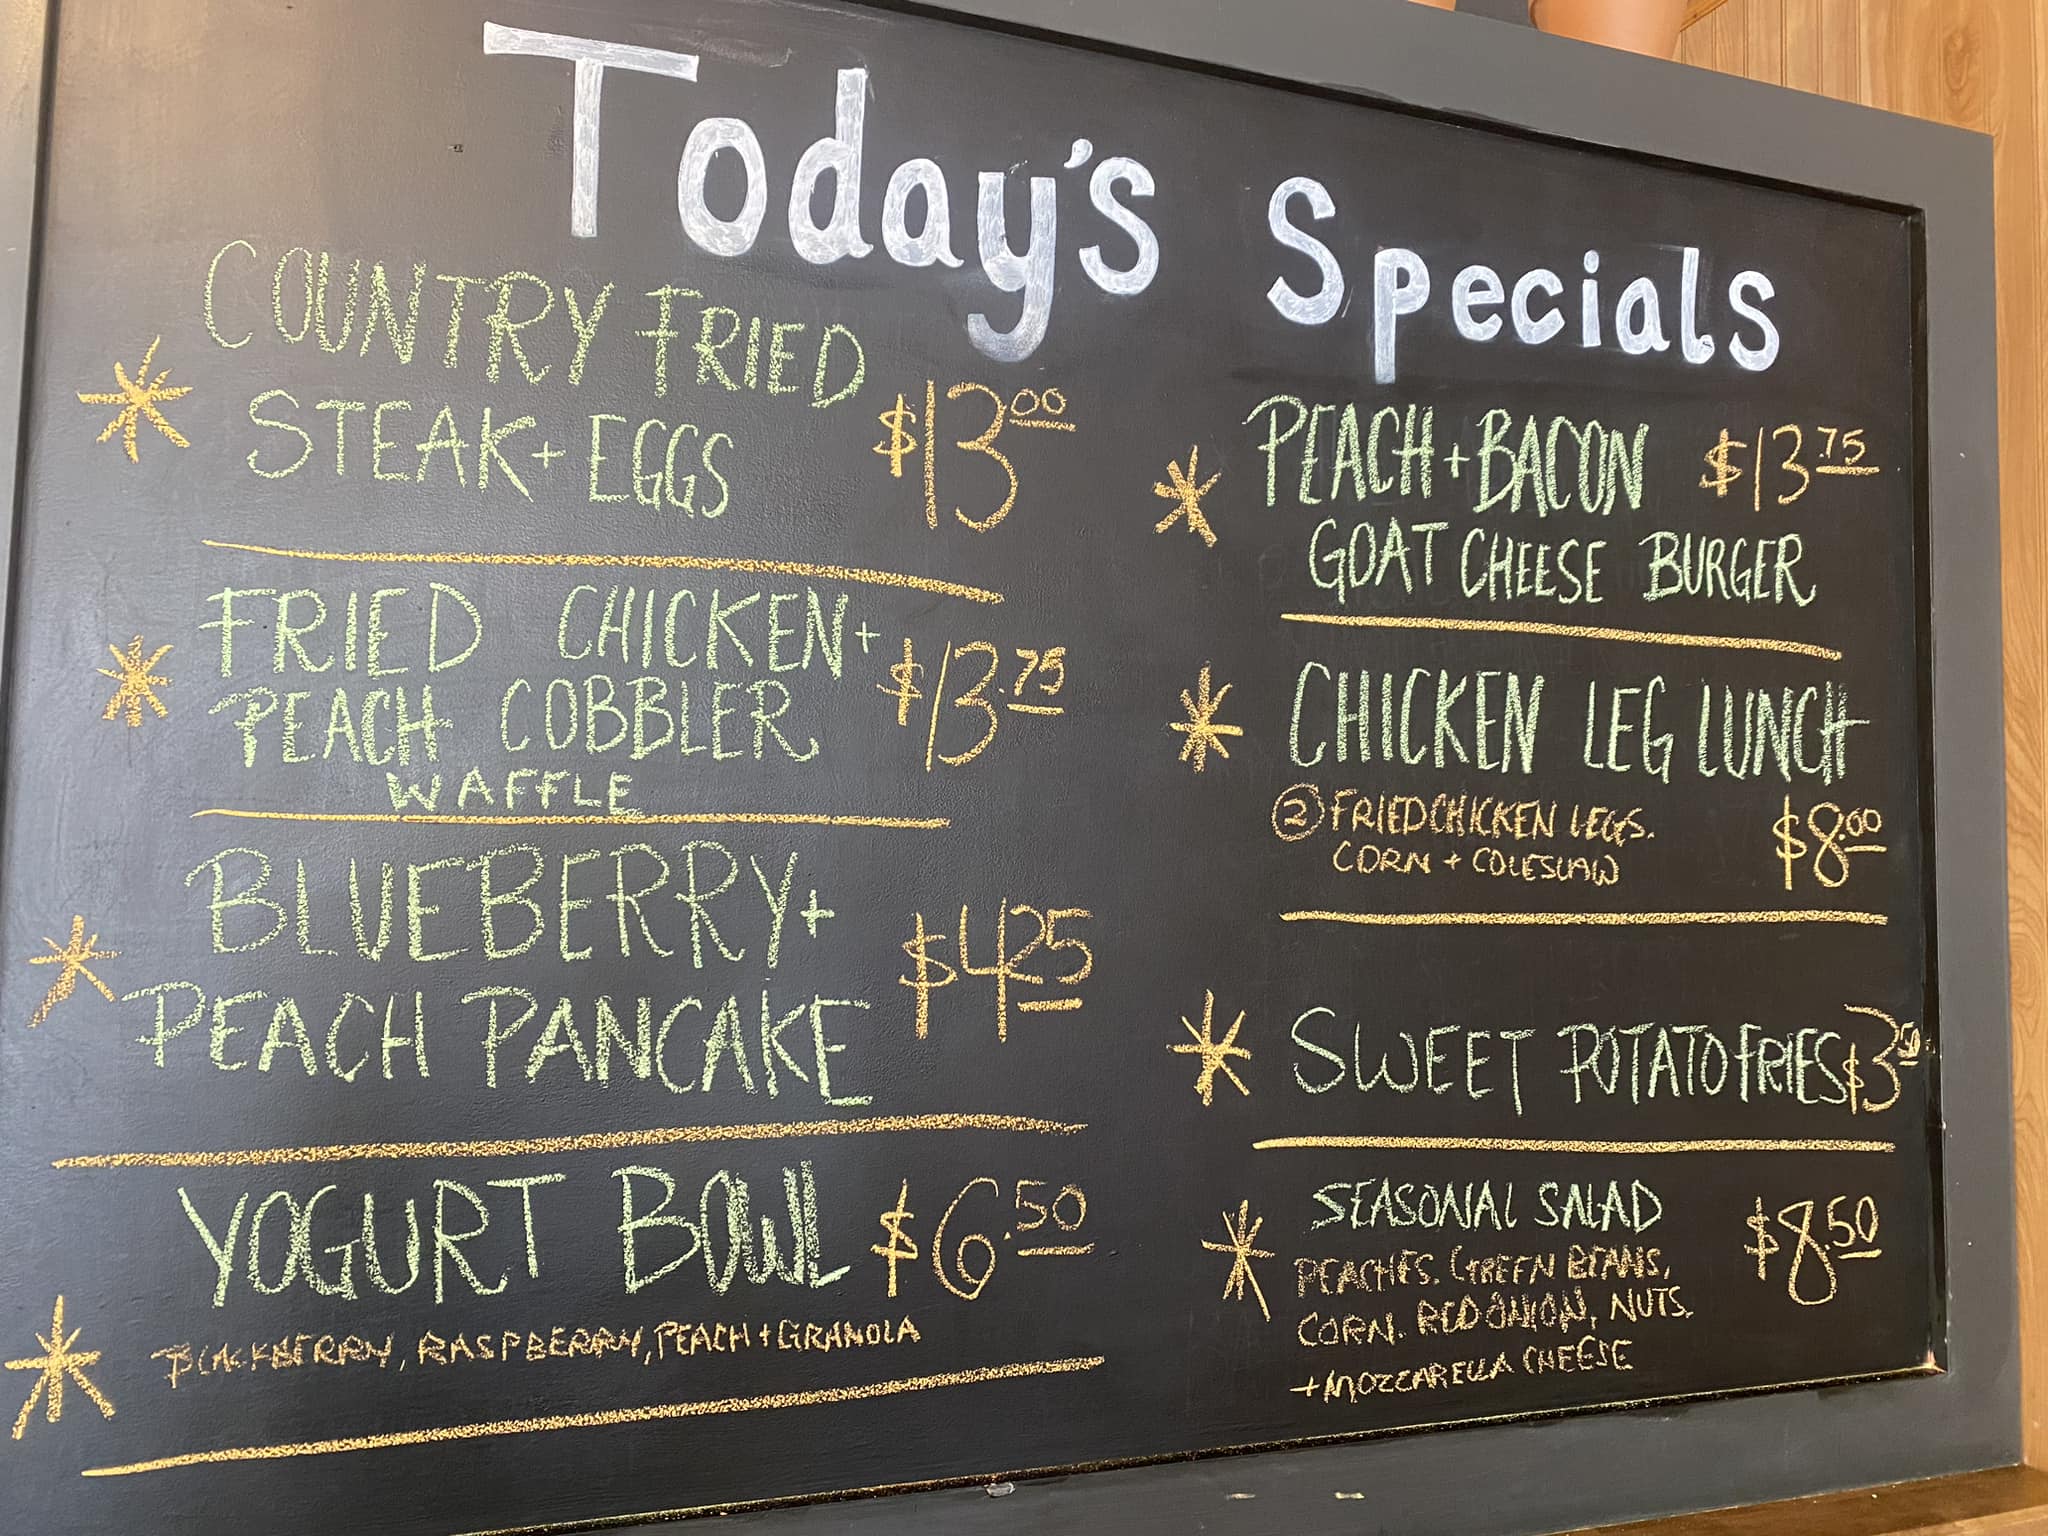 Today's Specials
COUNTRY FRIED
STEAK + EGGS $13.00
FRIED CHICKEN +
PEACH COBBLER $13.75
WAFFLE
BLUEBERRY +
PEACH PANCAKE $4.25
YOGURT BOWL $6.50
BLACKBERRY, RASPBERRY, PEACH + GRANOLA
PEACH + BACON $13.75
GOAT CHEESE BURGER
CHICKEN LEG LUNCH
2 FRIED CHICKEN LEGS. $8.00
CORN + COLESLAW
SWEET POTATO FRIES
SEASONAL SALAD $8.50
PEACHES. GREEN BEANS,
CORN. RED ONION, NUTS.
+ MOZZARELLA CHEESE